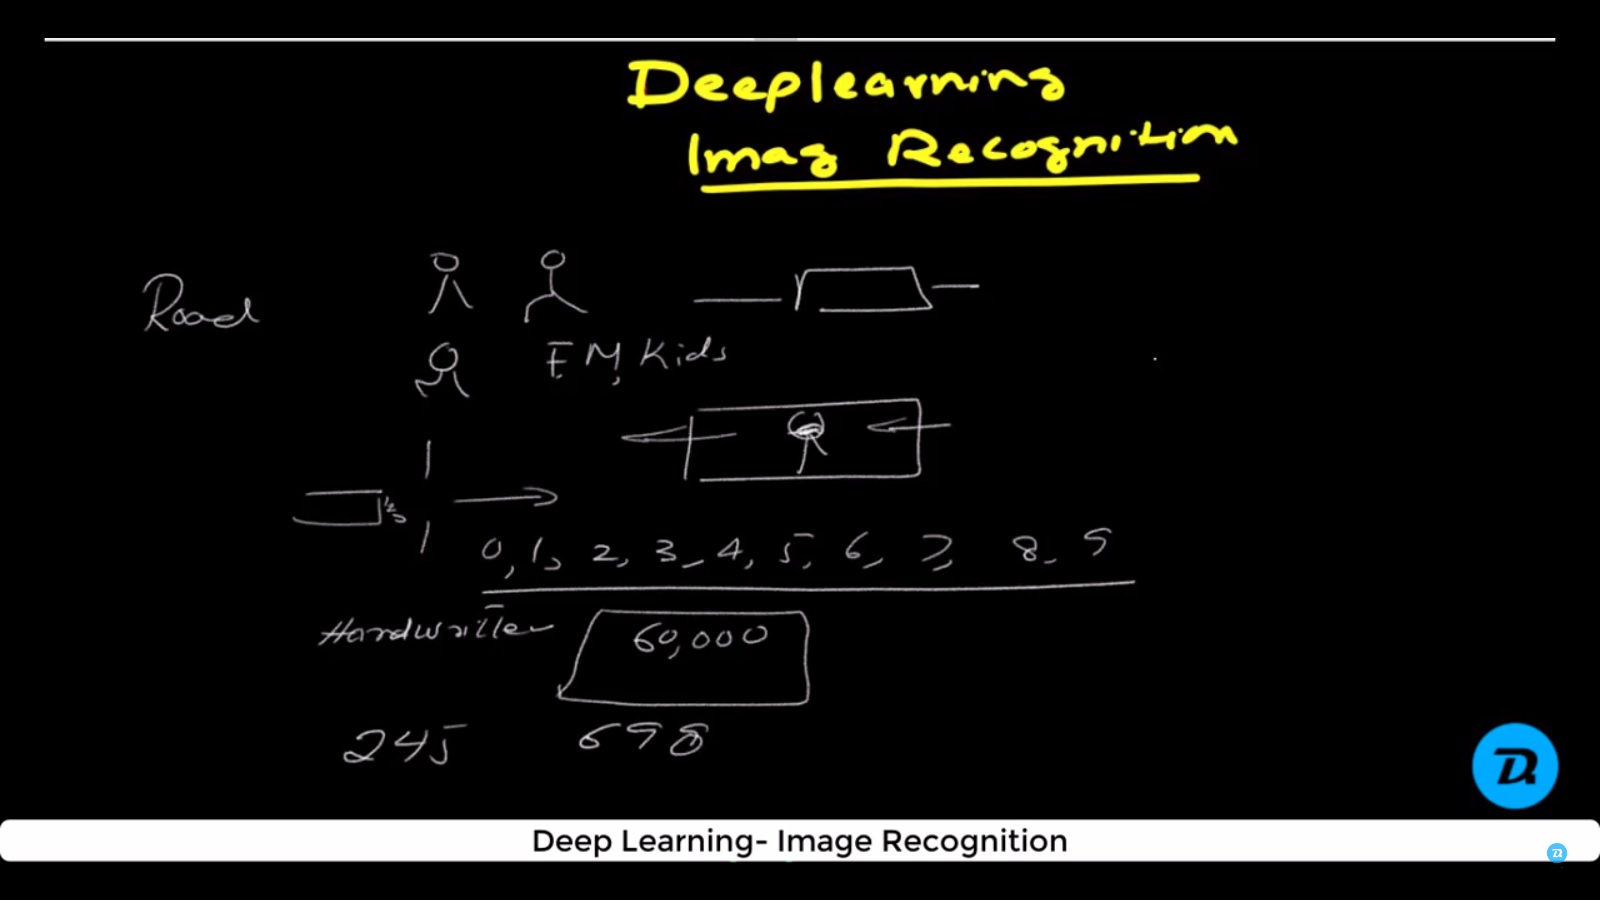 Deeplearning
Imag Recognition
Road
F, M, Kids
0, 1, 2, 3, 4, 5, 6, 7, 8, 9
Handwritten
60,000
245 698
Deep Learning- Image Recognition